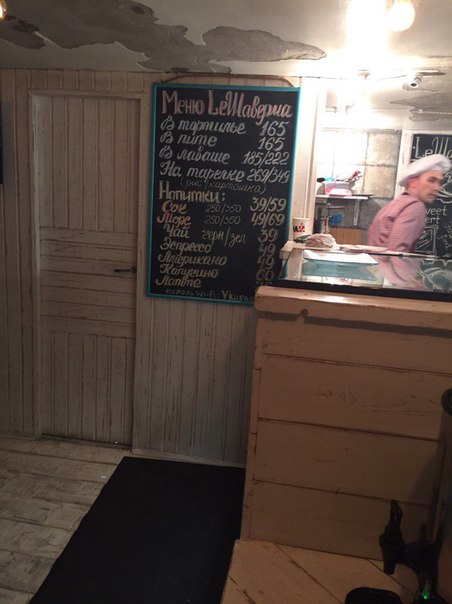 Меню LeШаверма
В тортилье 165
В пите 165
В лаваше 185/222
На тарелке 269/349
(рис/картошка)
Напитки:
Сок 250/350 39/59
Морс 250/350 49/69
Чай черн/зел 39
Эспрессо
Американо
Капучино
Латте
пароль Wi-Fi:
LeШа